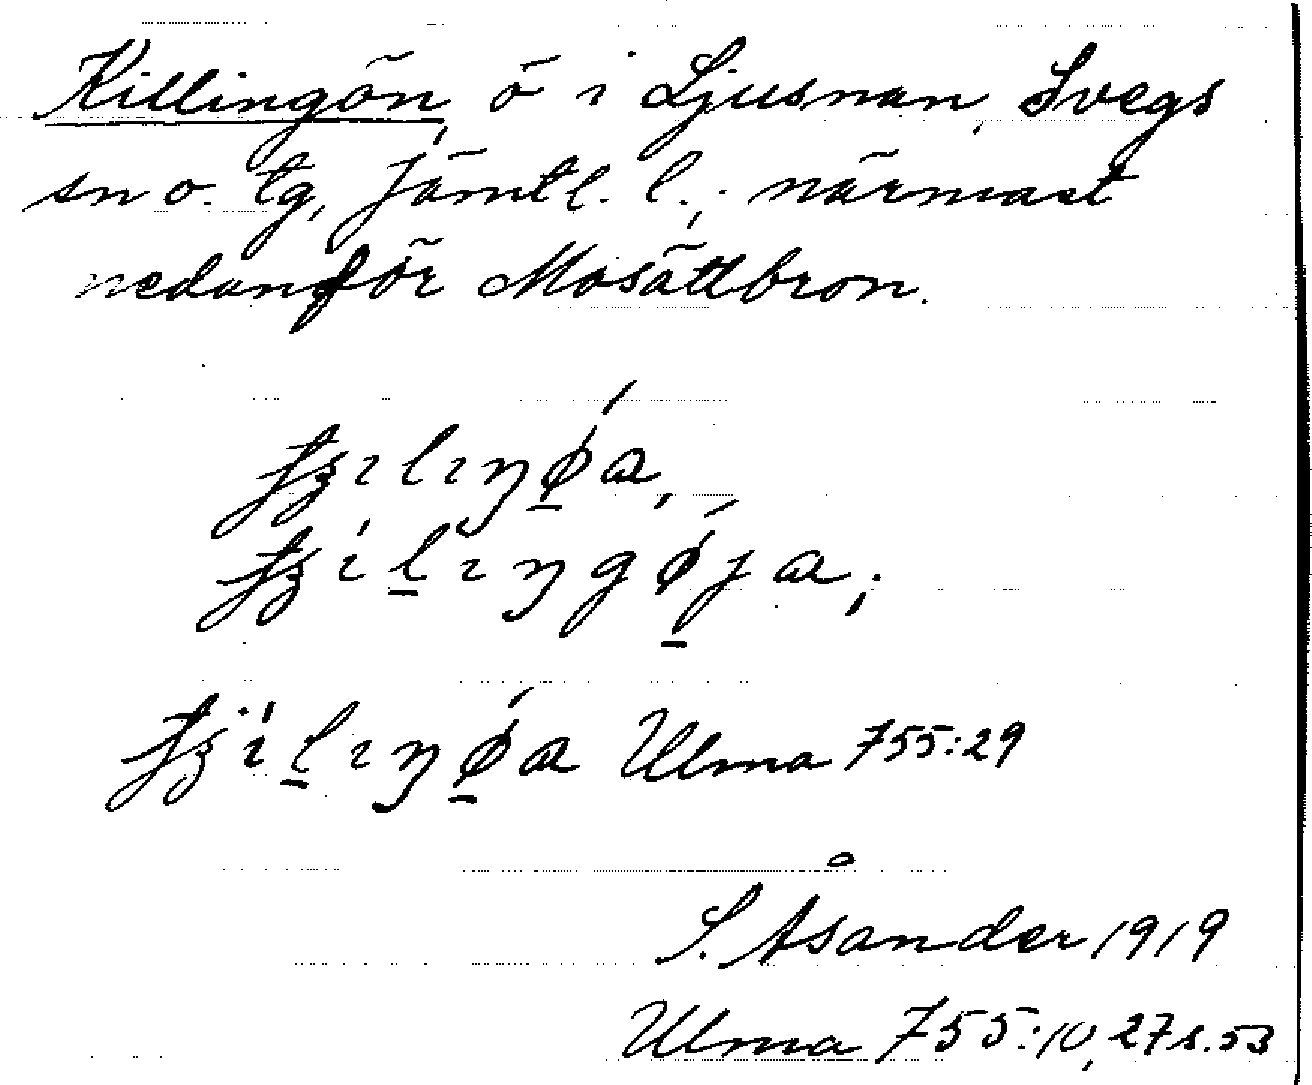 Killingön, ö i Ljusnan, Svegs
sn o. tg, Jämtl. l.; närmast
nedanför Mosättbron.
Ulma 755:29
S. Åsander 1919
Ulma 755:10, 27 s. 53